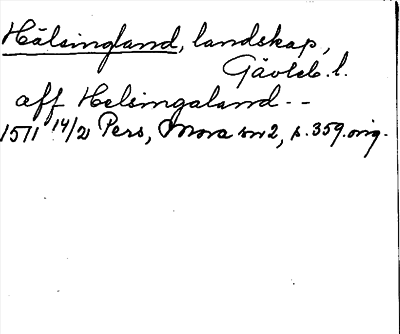 Hälsingland, landskap,
Gävleb. l.
aff Helsingaland - -
1511 14/2 Pers, Mora nr 2, s. 359. orig.